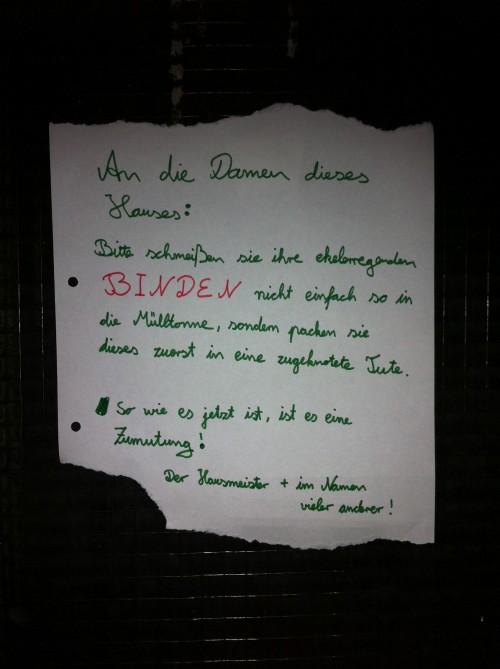 An die Damen dieses
Hauses:
Bitte schmeißen sie ihre ekelerregenden
BINDEN nicht einfach so in
die Mülltonne, sondern packen sie
dieses zuerst in eine zugeknotete Tüte.
So wie es jetzt ist, ist es eine
Zumutung!
Der Hausmeister + im Namen
vieler anderer!